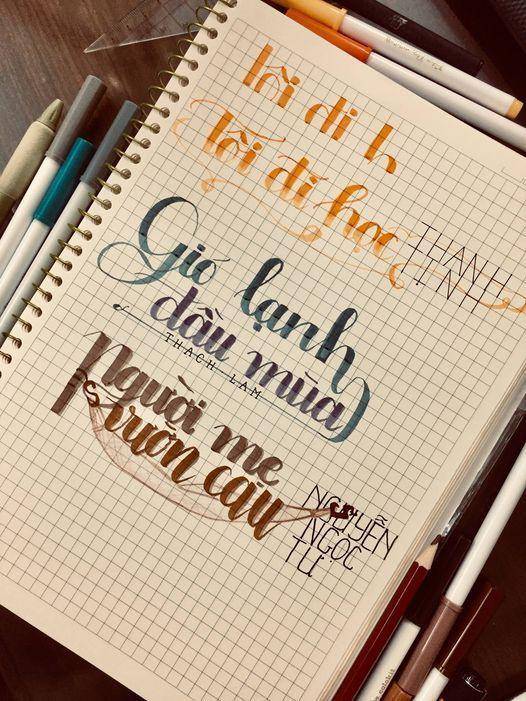 lối đi h
lối đi học
THANH
TỊNH
Gió lạnh
đầu mùa
THẠCH LAM
Người mẹ
vườn cau
NGUYỄN
NGỌC
TƯ